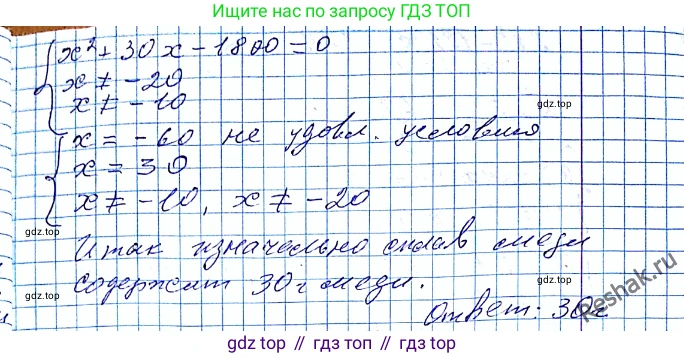 Ищите нас по запросу ГДЗ ТОП
x² + 30x - 1800 = 0
x ≠ -20
x ≠ -10
gdz.top
x = -60 не удовл. условия
x = 30
x ≠ -10, x ≠ -20
gdz.top
Итак изначально сплав меди
содержит 30 г меди.
gdz.top
gdz.top
Ответ: 30г
Reshak.ru
gdz top // гдз топ // gdz.top